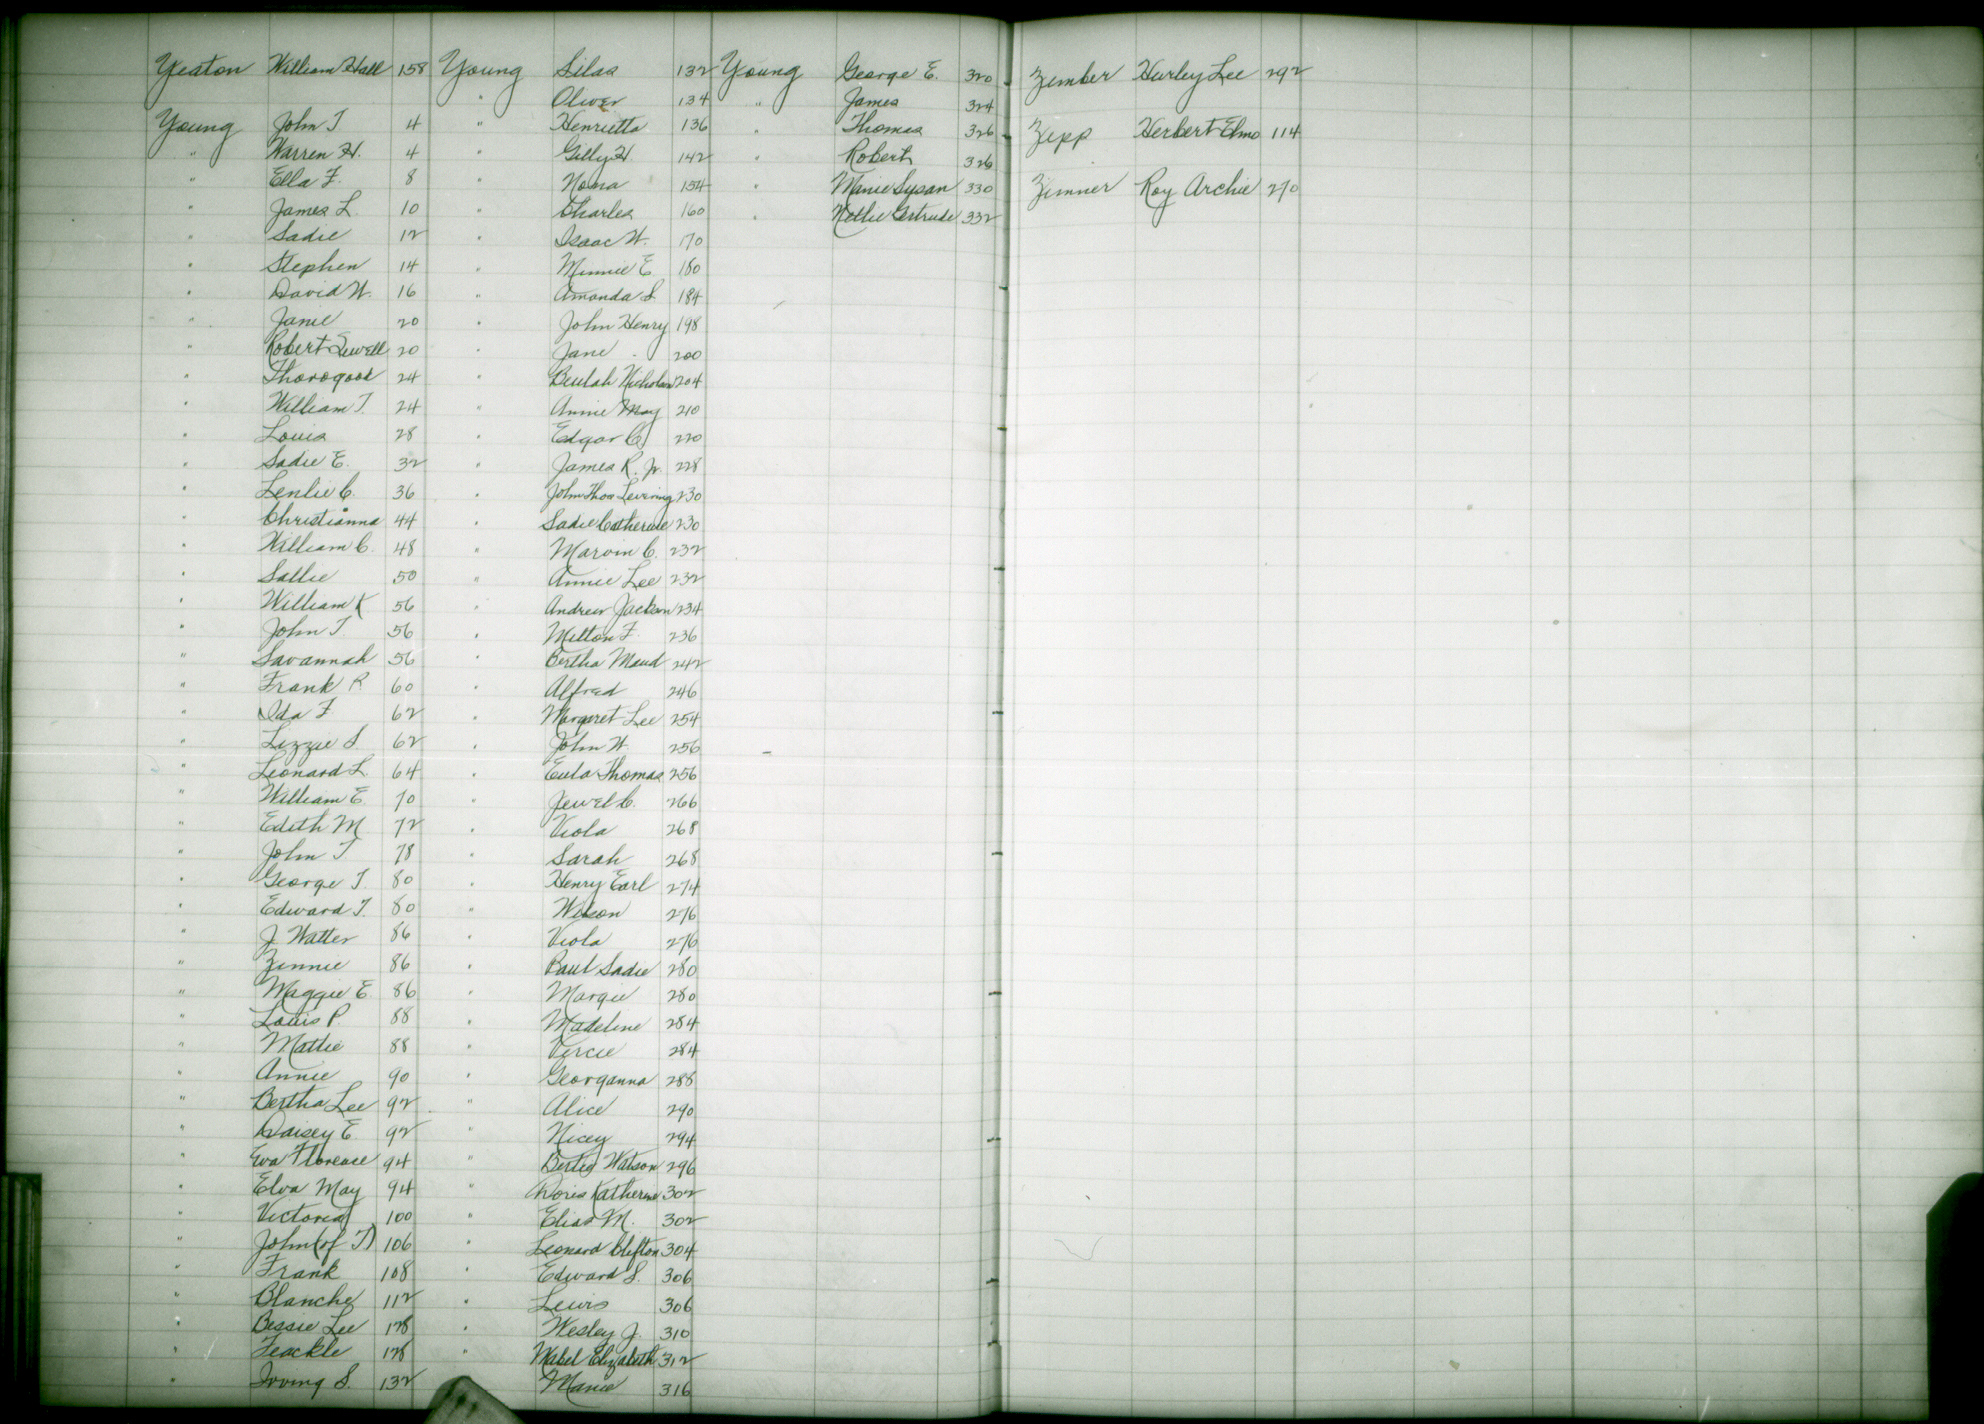 Yeaton William Hall 158
Young John T 4
" Warren H. 4
" Ella F. 8
" James L. 10
" Sadie 12
" Stephen 14
" David W. 16
" Janie 20
" Robert Sewell 20
" Thorogood 24
" William T. 24
" Louis 28
" Sadie E. 32
" Leslie C. 36
" Christianna 44
" William C. 48
" Sallie 50
" William K 56
" John T 56
" Savannah 56
" Frank R 60
" Ida F 62
" Lizzie S 62
" Leonard L. 64
" William E. 70
" Edith M 72
" John T 78
" George T. 80
" Edward T. 80
" J Walter 86
" Zinnie 86
" Maggie E 86
" Louis P. 88
" Mattie 88
" Annie 90
" Bertha Lee 92
" Daisey E 92
" Eva Florence 94
" Elva May 94
" Victoria 100
" John (of T) 106
" Frank 108
" Blanche 112
" Bessie Lee 128
" Teackle 128
" Irving S. 132
Young Silas 132
" Oliver 134
" Henrietta 136
" Gilly H. 142
" Noma 154
" Charles 160
" Isaac W. 170
" Minnie E 180
" Amanda S. 184
" John Henry 198
" Jane 200
" Beulah Nicholson 204
" Annie May 210
" Edgar C 220
" James R. Jr. 228
" John Thos Levering 230
" Sadie Catherine 230
" Marvin C. 232
" Annie Lee 232
" Andrew Jackson 234
" Milton F. 236
" Bertha Maud 242
" Alfred 246
" Margaret Lee 254
" John W. 256
" Eula Thomas 256
" Jewel C. 266
" Viola 268
" Sarah 268
" Henry Earl 274
" Wilson 276
" Viola 276
" Paul Sadie 280
" Margie 280
" Madeline 284
" Vircie 284
" Georganna 288
" Alice 290
" Nicey 294
" Watson 296
" Doris Katherine 302
" Elias M. 302
" Leonard Clifton 304
" Edward S. 306
" Lewis 306
" Wesley J. 310
" Mabel Elizabeth 312
" Manie 316
Young George E. 320
" James 324
" Thomas 326
" Robert 326
" Manie Susan 330
" Nellie Gertrude 332
Zember Hurley Lee 292
Zepp Herbert Elmo 114
Zimner Roy Archie 270